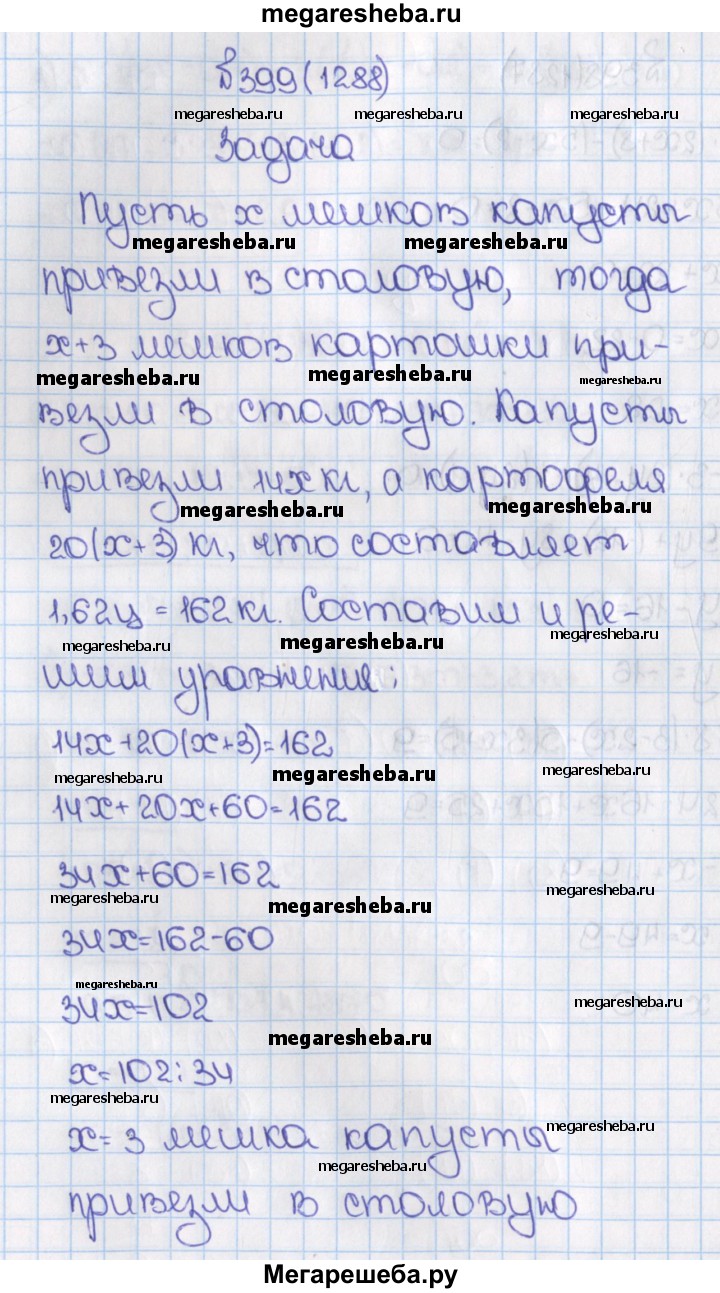 megaresheba.ru
№399(1288)
megaresheba.ru megaresheba.ru megaresheba.ru
Задача
Пусть х мешков капусты
megaresheba.ru megaresheba.ru
привезли в столовую, тогда
х+3 мешков картошки при-
megaresheba.ru megaresheba.ru megaresheba.ru
везли в столовую. Капусты
привезли 14х кг, а картофеля
megaresheba.ru megaresheba.ru
20(х+3) кг, что составляет
1,62ц = 162 кг. Составим и ре-
megaresheba.ru megaresheba.ru megaresheba.ru
шим уравнение:
14х+20(х+3)=162
megaresheba.ru megaresheba.ru megaresheba.ru
14х+20х+60=162
34х+60=162
megaresheba.ru megaresheba.ru megaresheba.ru
34х=162-60
megaresheba.ru
34х=102 megaresheba.ru
megaresheba.ru
х=102:34
megaresheba.ru megaresheba.ru
х=3 мешка капусты
megaresheba.ru
привезли в столовую
Мегарешеба.ру